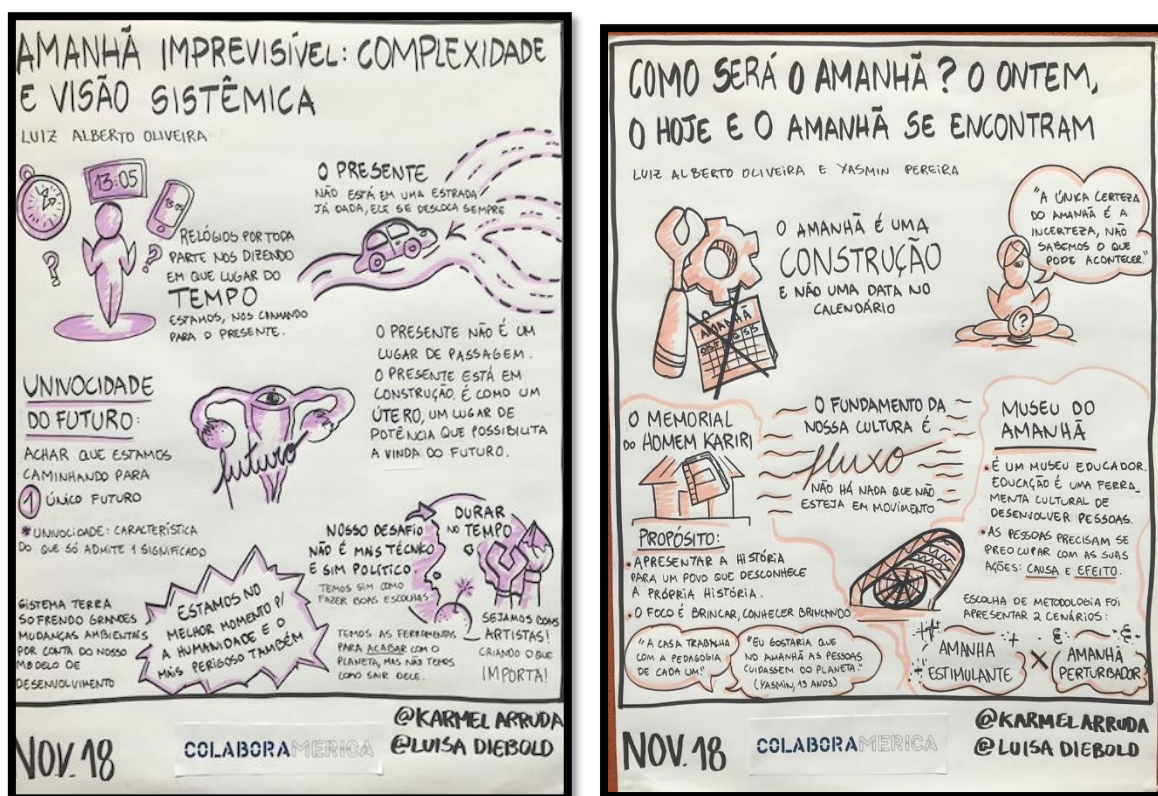 AMANHÃ IMPREVISÍVEL: COMPLEXIDADE
E VISÃO SISTÊMICA
LUIZ ALBERTO OLIVEIRA
13:05
13:05
RELÓGIOS POR TODA
PARTE NOS DIZENDO
EM QUE LUGAR DO
TEMPO
ESTAMOS, NOS CHAMANDO
PARA O PRESENTE.
O PRESENTE
NÃO ESTÁ EM UMA ESTRADA
JÁ DADA, ELE SE DESLOCA SEMPRE
O PRESENTE NÃO É UM
LUGAR DE PASSAGEM.
O PRESENTE ESTÁ EM
CONSTRUÇÃO, É COMO UM
ÚTERO, UM LUGAR DE
POTÊNCIA QUE POSSIBILITA
A VINDA DO FUTURO.
futuro
UNIVOCIDADE
DO FUTURO:
ACHAR QUE ESTAMOS
CAMINHANDO PARA
1 ÚNICO FUTURO
*UNIVOCIDADE: CARACTERÍSTICA
DO QUE SÓ ADMITE 1 SIGNIFICADO
SISTEMA TERRA
SOFRENDO GRANDES
MUDANÇAS AMBIENTAIS
POR CONTA DO NOSSO
MODELO DE
DESENVOLVIMENTO
ESTAMOS NO
MELHOR MOMENTO P/
A HUMANIDADE E O
MAIS PERIGOSO TAMBÉM
NOSSO DESAFIO
NÃO É MAIS TÉCNICO
E SIM POLÍTICO.
TEMOS SIM COMO
FAZER BOAS ESCOLHAS
TEMOS AS FERRAMENTAS
PARA ACABAR COM O
PLANETA, MAS NÃO TEMOS
COMO SAIR DELE.
DURAR
NO TEMPO
SEJAMOS BONS
ARTISTAS!
CRIANDO O QUE
IMPORTA!
NOV. 18
COLABORAMERICA
@KARMEL ARRUDA
@LUISA DIEBOLD
COMO SERÁ O AMANHÃ? O ONTEM,
O HOJE E O AMANHÃ SE ENCONTRAM
LUIZ ALBERTO OLIVEIRA E YASMIN PEREIRA
O AMANHÃ É UMA
CONSTRUÇÃO
E NÃO UMA DATA NO
CALENDÁRIO
AMANHÃ
"A ÚNICA CERTEZA
DO AMANHÃ É A
INCERTEZA, NÃO
SABEMOS O QUE
PODE ACONTECER"
?
O MEMORIAL
DO HOMEM KARIRI
PROPÓSITO:
• APRESENTAR A HISTÓRIA
PARA UM POVO QUE DESCONHECE
A PRÓPRIA HISTÓRIA.
• O FOCO É BRINCAR, CONHECER BRINCANDO
"A CASA TRABALHA
COM A PEDAGOGIA
DE CADA UM."
"EU GOSTARIA QUE
NO AMANHÃ AS PESSOAS
CUIDASSEM DO PLANETA."
(YASMIN, 13 ANOS)
O FUNDAMENTO DA
NOSSA CULTURA É
fluxo
NÃO HÁ NADA QUE NÃO
ESTEJA EM MOVIMENTO
MUSEU DO
AMANHÃ
• É UM MUSEU EDUCADOR.
EDUCAÇÃO É UMA FERRA_
MENTA CULTURAL DE
DESENVOLVER PESSOAS.
• AS PESSOAS PRECISAM SE
PREOCUPAR COM AS SUAS
AÇÕES: CAUSA E EFEITO.
ESCOLHA DE METODOLOGIA FOI
APRESENTAR 2 CENÁRIOS:
AMANHÃ
ESTIMULANTE
X
AMANHÃ
PERTURBADOR
NOV. 18
COLABORAMERICA
@KARMEL ARRUDA
@LUISA DIEBOLD